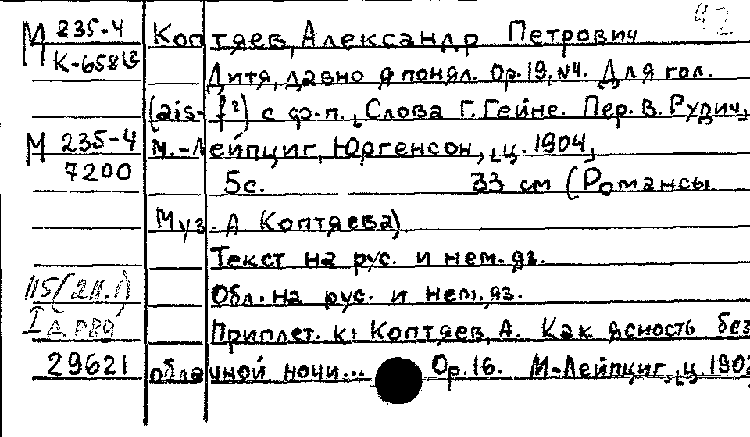 42
М 235-4 Коптяев, Александр Петрович
К-658
Дитя, давно я понял. Op.19, №4. Для гол.
(ais-f²) с ф-п. Слова Г. Гейне. Пер. В. Рудич,
М 235-4 М.-Лейпциг, Юргенсон, ц. 1904,
7200 5с. 33 см (Романсы
Муз. А Коптяева)
Текст на рус. и нем. яз.
115(2н.1) Обл. на рус. и нем. яз.
I Приплет. к: Коптяев, А. Как ясность без
29621 облачной ночи... Op.16. М-Лейпциг, ц. 190